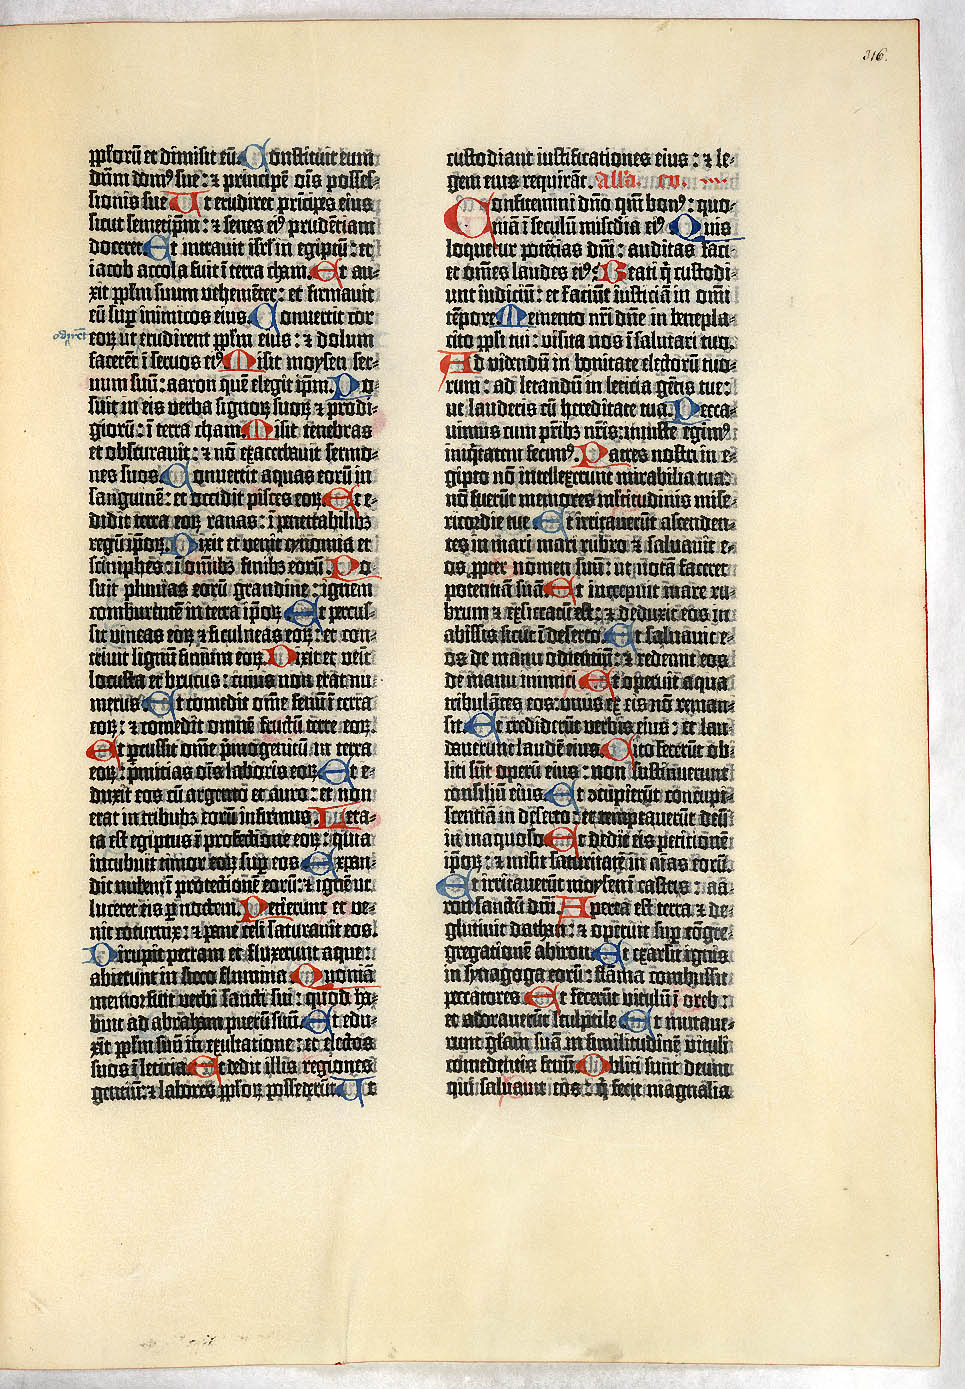 316.
pplorū et dimisit eū. Constituit eum
dn̄m domꝰ sue: ⁊ principē oīs posses-
sionis sue Ut erudiret prīcipes eius
sicut semetip̄m: ⁊ senes eiꝰ prudētiam
doceret Et intrauit isrl̄ in egiptū: et
iacob accola fuit ī terra cham. Et au-
xit pplm̄ suum vehemēter: et firmauit
eū sup̄ inimicos eius. Conuertit cor
eoꝝ ut erudirent pplm̄ eius: ⁊ dolum
facerēt ī seruos eiꝰ Misit moysen ser-
uum suū: aaron quē elegit ip̄m. Po-
suit in eis verba signoꝝ suoꝝ ⁊ prodi-
gioꝝū: ī terra cham. Misit tenebras
et obscurauit: ⁊ nō exacerbauit sermo-
nes suos Conuertit aquas eorū in
sanguinē: et occidit pisces eoꝝ Et e-
didit terra eoꝝ ranas: ī penetrabilibꝫ
regū ip̄oꝝ. Dixit et venit cynomia et
sciniphes: ī om̄ibꝫ finibꝫ eorū. Po-
suit pluuias eorū grandinē: ignem
comburentē in terra ip̄oꝝ Et percus-
sit vineas eoꝝ ⁊ ficulneas eoꝝ: et con-
triuit lignū finium eoꝝ. Dixit et venīt
locusta et brucus: cuius non erāt nu-
merus. Et comedit om̄e fenū ī terra
eoꝝ: ⁊ comedit omnē fructū terre eoꝝ.
Et percussit om̄e pͥmogenitū in terra
eoꝝ: pͥmitias oīs laboris eoꝝ Et e-
duxit eos cū argento et auro: et non
erat in tribubꝫ eorū infirmus. Leta-
ta est egiptus ī profectione eoꝝ: quia
incubuit timor eoꝝ sup̄ eos Expan-
dit nubem ī protectionē eorū: ⁊ ignē ut
luceret eis p noctem. Petierunt et ve-
nit coturnix: ⁊ pane celi saturauit eos.
Dirupit petram et fluxerunt aque:
abierunt in sicco flumina Quoniā
memor fuit verbi sancti sui: quod ha-
buit ad abraham puerū suū. Et edu-
xit pplm̄ suū in exultatione: et electos
suos ī leticia Et dedit illis regiones
gentiū: ⁊ labores pploꝝ possederūt Ut
custodiant iustificationes eius: ⁊ le-
gem eius requirāt. Alla. cv.
Confitemini dn̄o qm̄ bonꝰ: quo-
niā ī seculū misc̄dia eiꝰ Quis
loquetur potētias dn̄i: auditas faciet
et om̄es laudes eiꝰ? Beati q̄ custodi-
unt iudiciū: et faciūt iusticiā in om̄i
tēpore. Memento nr̄i dn̄e in benepla-
cito ppli tui: visita nos ī salutari tuo.
Ad videndū in bonitate electorū tuo-
rum: ad letandū in leticia gētis tue:
ut lauderis cū hereditate tua. Pecca-
uimus cum pr̄ibꝫ nr̄is: iniuste egimꝰ
iniq̄tatem fecimꝰ. Patres nostri in e-
gipto nō intellexerunt mirabilia tua:
nō fuerūt memores ml̄titudinis mise-
ricordie tue Et irritauerūt ascenden-
tes in mari mari rubro ⁊ saluauit e-
os ppter nomen suū: ut notā faceret
potentiā suā Et increpuit mare ru-
brum ⁊ exsiccatū est: ⁊ deduxit eos in
abissis sicut ī deserto. Et saluauit e-
os de manu odientiū: ⁊ redemit eos
de manu inimici Et operuit aqua
tribulātes eos: unus ex eis nō reman-
sit. Et crediderūt verbis eius: et lau-
dauerunt laudē eius. Cito fecerūt ob-
liti sūt operū eius: non sustinuerunt
consiliū eius. Et ꝯcupierūt concupi-
scentiā in deserto: et temptauerūt deū
in inaquoso. Et dedit eis petitionē
ip̄oꝝ: ⁊ misit saturitatē in aīas eorū.
Et irritauerūt moysen ī castris: aa-
ron sanctū dn̄i. Aperta est terra ⁊ de-
glutiuit dathan: ⁊ operuit sup̄ cōgre-
gationē abiron. Et exarsit ignis
in synagoga eorū: flāma combussit
peccatores Et fecerūt vitulū ī oreb:
et adorauerūt sculptile Et mutaue-
runt gl̄iam suā in similitudinē vituli
comedentis fenū Obliti sunt deum
qui saluauit eōs: q̄ fecit magnalia